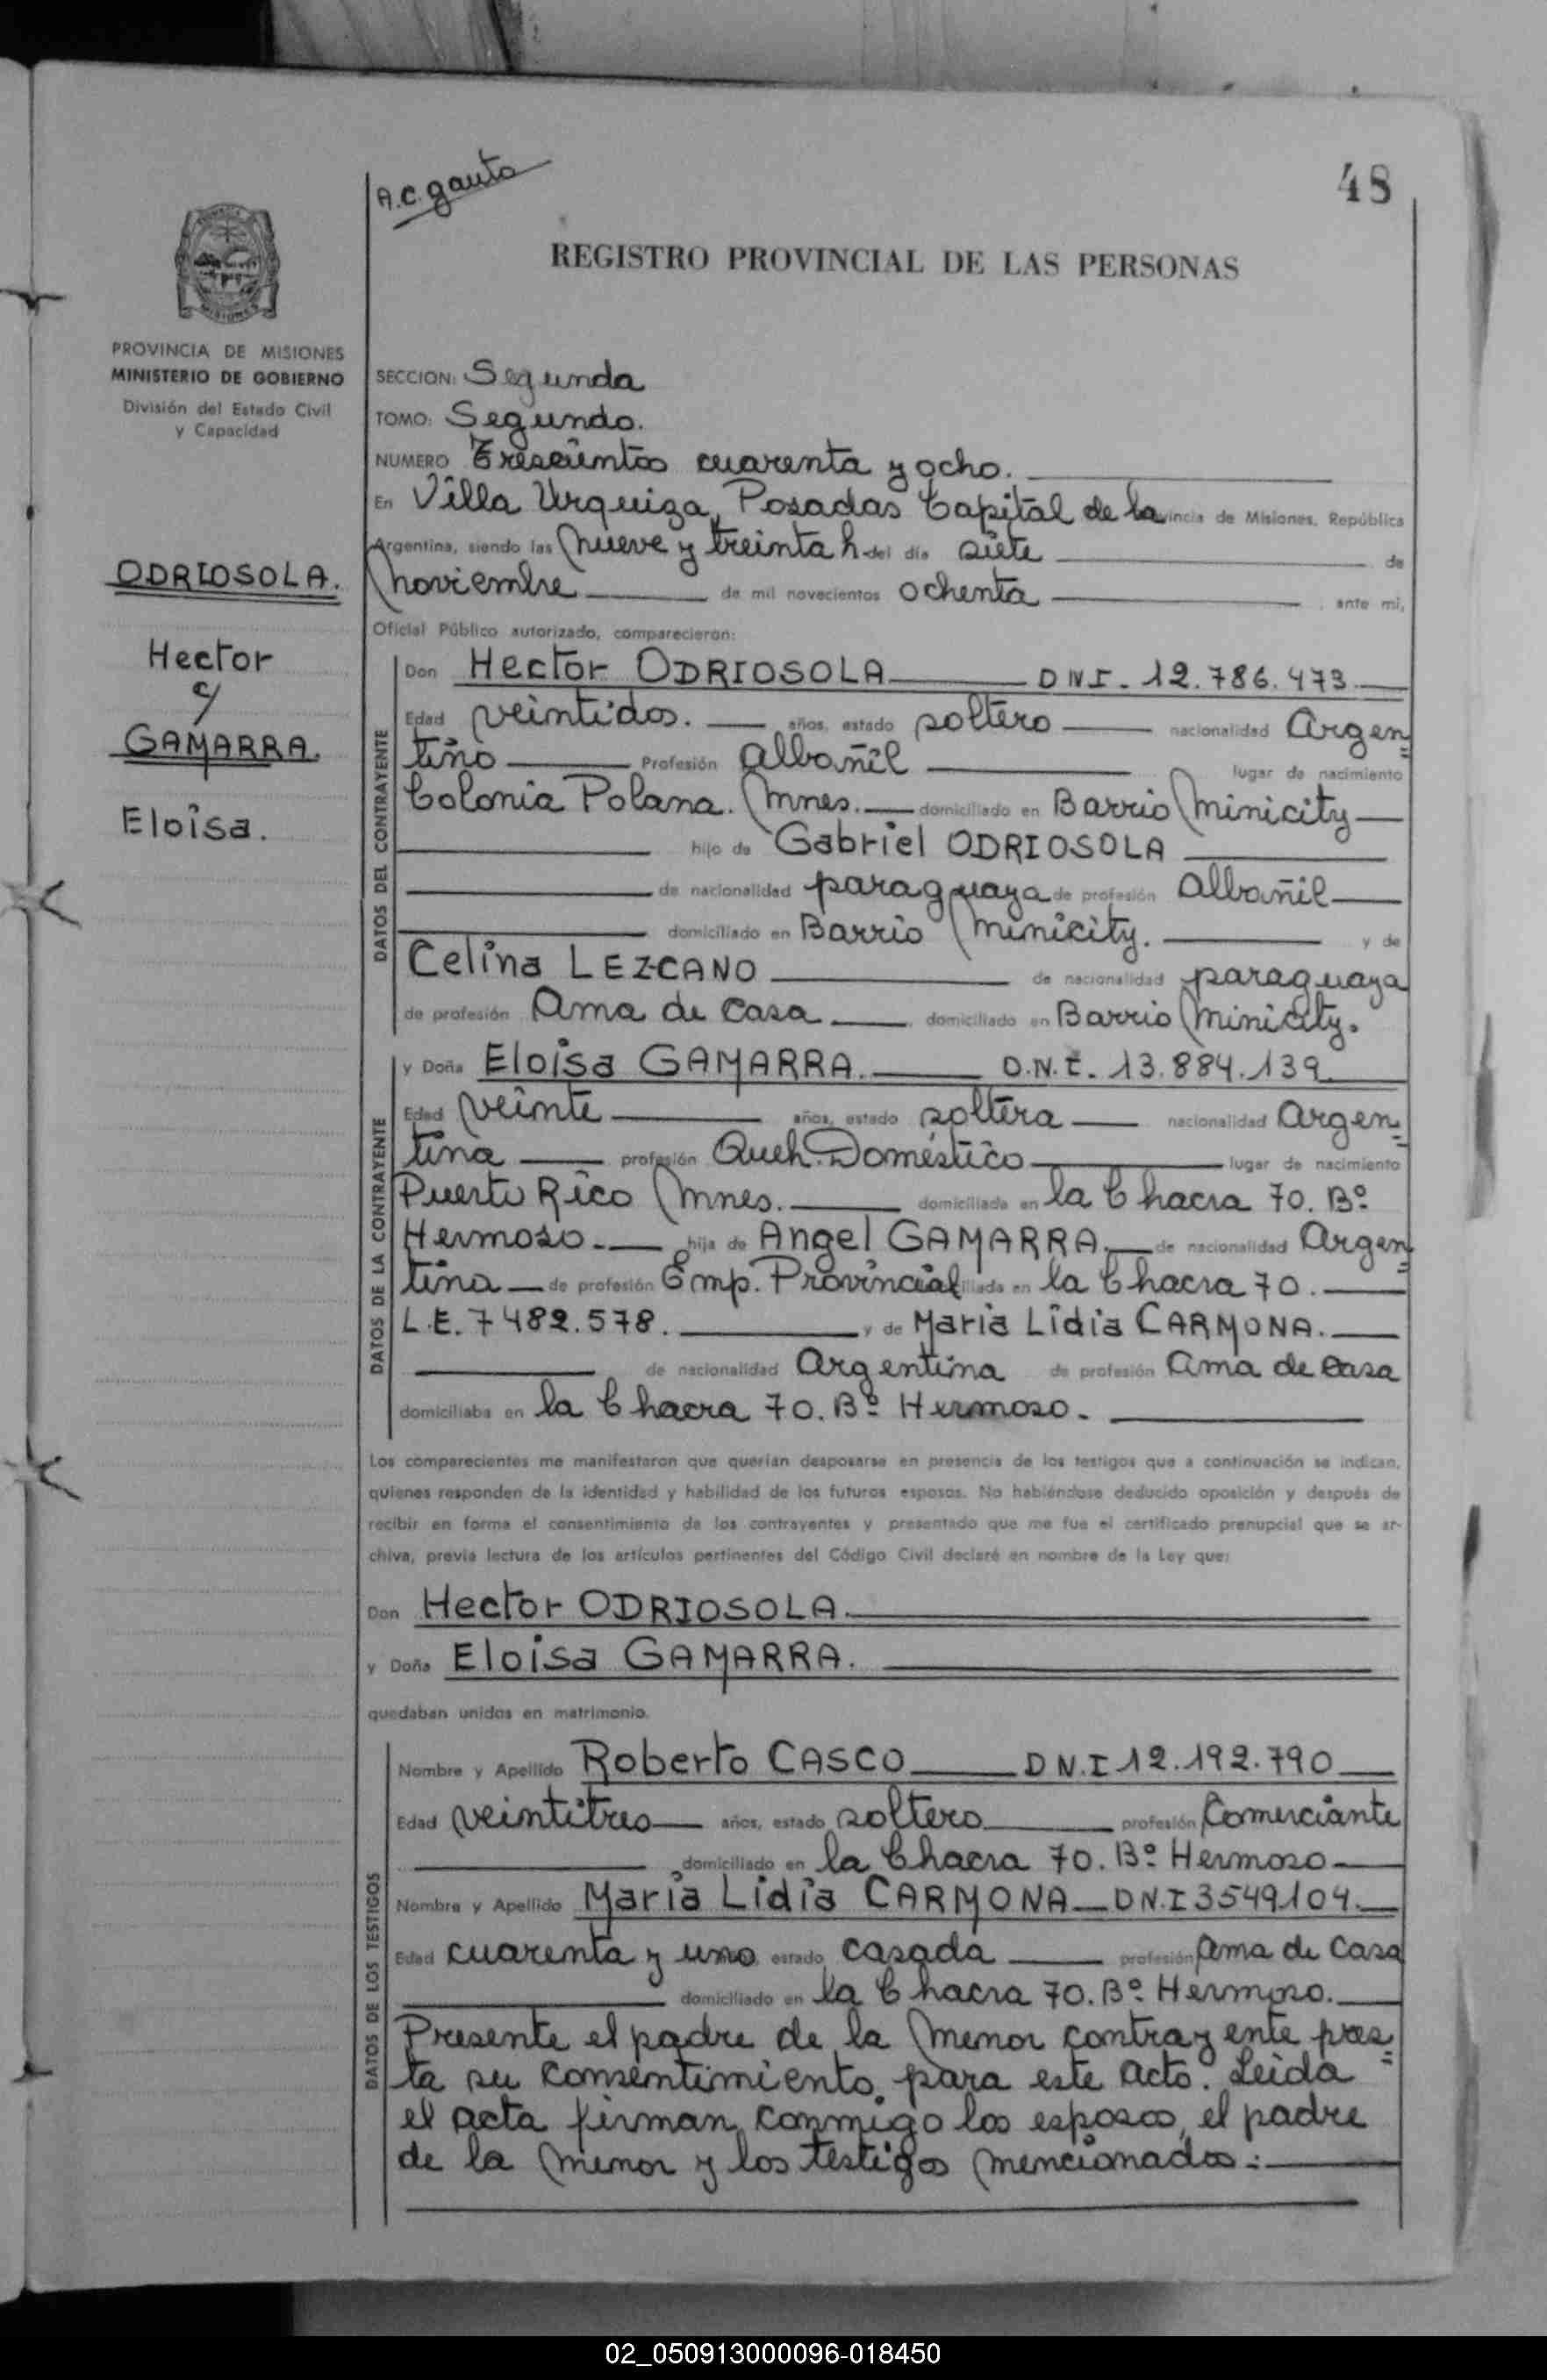 A.C. gauto
48
REGISTRO PROVINCIAL DE LAS PERSONAS
PROVINCIA DE MISIONES
MINISTERIO DE GOBIERNO
División del Estado Civil
y Capacidad
ODRIOSOLA.
Hector
c/
GAMARRA.
Eloisa.
SECCION: Segunda
TOMO: Segundo.
NUMERO Trescientos cuarenta y ocho.
En Villa Urquiza, Posadas Capital de la vincia de Misiones, República
Argentina, siendo las nueve y treinta h. del día siete de
noviembre de mil novecientos ochenta , ante mí,
Oficial Público autorizado, comparecieron:
DATOS DEL CONTRAYENTE
Don Hector ODRIOSOLA DNI. 12.786.473
Edad veintidos. años, estado soltero nacionalidad Argen=
tino Profesión albañil lugar de nacimiento
Colonia Polana. Mnes. domiciliado en Barrio Minicity
hijo de Gabriel ODRIOSOLA
de nacionalidad paraguaya de profesión albañil
domiciliado en Barrio Minicity. y de
Celina LEZCANO de nacionalidad paraguaya
de profesión Ama de casa domiciliado en Barrio Minicity.
DATOS DE LA CONTRAYENTE
y Doña Eloisa GAMARRA. D.N.I. 13.884.139
Edad veinte años, estado soltera nacionalidad argen=
tina profesión Queh. Doméstico lugar de nacimiento
Puerto Rico Mnes. domiciliada en la Chacra 70. Bº
Hermoso. hija de Angel GAMARRA. de nacionalidad Argen=
tina de profesión Emp. Provincial iliada en la Chacra 70.
L.E. 7482.578. y de Maria Lidia CARMONA.
de nacionalidad Argentina de profesión ama de casa
domiciliaba en la Chacra 70. Bº Hermoso.
Los comparecientes me manifestaron que querían desposarse en presencia de los testigos que a continuación se indican,
quienes responden de la identidad y habilidad de los futuros esposos. No habiéndose deducido oposición y después de
recibir en forma el consentimiento de los contrayentes y presentado que me fue el certificado prenupcial que se ar-
chiva, previa lectura de los artículos pertinentes del Código Civil declaré en nombre de la Ley que:
Don Hector ODRIOSOLA.
y Doña Eloisa GAMARRA.
quedaban unidos en matrimonio.
DATOS DE LOS TESTIGOS
Nombre y Apellido Roberto CASCO DN.I 12.192.790
Edad veintitres años, estado soltero profesión Comerciante
domiciliado en la Chacra 70. Bº Hermoso
Nombre y Apellido Maria Lidia CARMONA DN.I 3549104.
Edad cuarenta y uno estado casada profesión ama de casa
domiciliado en la Chacra 70. Bº Hermoso.
Presente el padre de la menor contrayente pres=
ta su consentimiento para este acto. Leida
el acta firman conmigo los esposos, el padre
de la menor y los testigos mencionados:
02_050913000096-018450